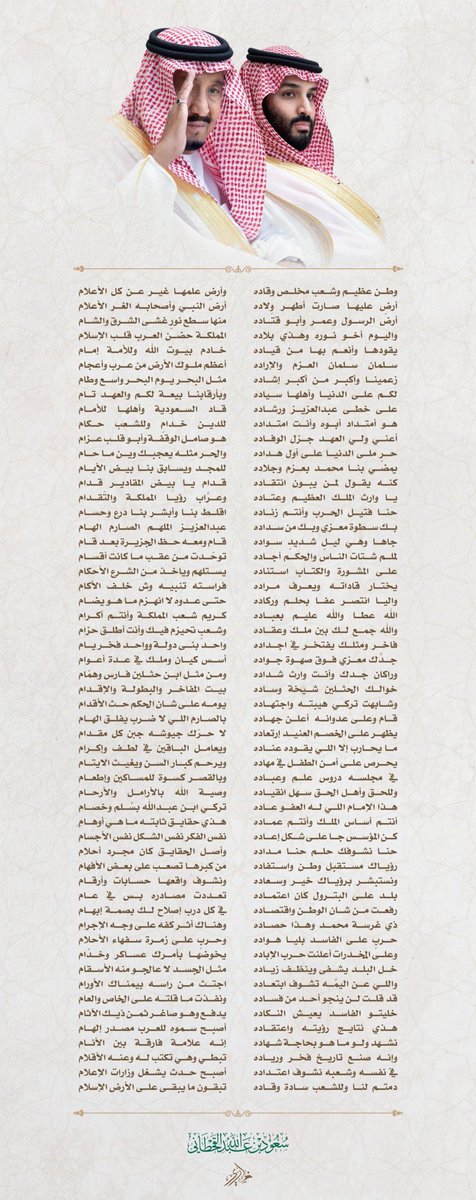 وطن عظيم وشعب مخلص وقاده وأرض علمها غير عن كل الأعلام
أرض عليها صارت أطهر ولاده أرض النبي وأصحابه الغر الأعلام
أرض الرسول وعمر وأبو قتاده منها سطع نور غشى الشرق والشام
واليوم أخو نوره وهذي بلاده المملكة حضن العرب قلب الإسلام
يقودها وأنعم بها من قياده خادم بيوت الله وللأمة إمام
سلمان سلمان العزم والإراده أعظم ملوك الأرض من عرب وأعجام
زعمينا وأكبر من أكبر إشاده مثل البحر يوم البحر واسع وطام
لكم على الدنيا وأهلها سياده ويأرقابنا بيعة لكم والعهد تام
على خطى عبدالعزيز ورشاده قاد السعودية وأهلها للأمام
هو أمتداد أبوه وأنت امتداده للدين خدام وللشعب حكام
أعني ولي العهد جزل الوفاده هو صامل الوقفة وأبو قلب عزام
حر ملى الدنيا على أول هداده والحر مثله يعجبك وين ما حام
يمضي بنا محمد بعزم وجلاده للمجد ويسابق بنا بيض الأيام
كنه يقول لمن يبون انتقاده قدام يا بيض المقادير قدام
يا وارث الملك العظيم وعتاده وعراب رؤيا المملكة والتقدام
حنا فتيل الحرب وأنتم زناده اقلط بنا وأبشر بنا درع وحسام
بك سطوة معزي وبك من سداده عبدالعزيز الملهم الصارم الهام
جاها وهي ليل شديد سواده قام ومعه حظ الجزيرة بعد قام
لملم شتات الناس والحكم أجاده توحدت من عقب ما كانت أقسام
على المشورة والكتاب استناده يستلهم وياخذ من الشرع الأحكام
يختار قاداته ويعرف مراده فراسته تنبيه وش خلف الأكام
واليا انتصر عفا بحلم وركاده حتى عدوه لا انهزم ما هو يضام
الله عطا والله عليم بعباده كريم شعب المملكة وأنتم أكرام
والله جمع لك بين ملك وعقاده وشعب تحيزم فيك وأنت أطلق حزام
فاخر ومثلك يفتخر في اجداده واحد بنى دولة وواحد فخر يام
جدك معزي فوق صهوة جواده أسس كيان وملك في عدة أعوام
وراكان جدك وأنت وارث شداده ومن مثل ابن حثلين فارس وهمام
خوالك الحثلين شيخة وساده بيت المفاخر والبطولة والإقدام
وشابهت تركي هيبته واجتهاده يومه على شان الحكم حث الأقدام
قام وعلى عدوانه أعلن جهاده بالصارم اللي لا ضرب يفلق الهام
يظهر على الخصم العنيد ارتعاده لا حرك جيوشه جين كل مقدام
ما يحارب إلا اللي يقوده عناده ويعامل الباقين في لطف وإكرام
يحرص على أمن الطفل في مهاده ويرحم كبار السن ويغيث الايتام
في مجلسه دروس علم وعباده وبالقصر كسوة للمساكين وإطعام
وللحق وأهل الحق سهل انقياده وصية الله بالأرامل والأرحام
هذا الإمام اللي له العفو عاده تركي ابن عبدالله بسلم وخصام
أنتم أساس الملك وأنتم عماده هذي حقايق ثابته ما هي أوهام
كن المؤسس جا على شكل إعاده نفس الفكر نفس الشكل نفس الأجسام
حنا نشوفك حلم حنا مداده وأصل الحقايق كان مجرد أحلام
رؤياك مستقبل وطن واستفاده من كبرها تصعب على بعض الأفهام
ونستبشر برؤياك خير وسعاده ونشوف واقعها حسابات وأرقام
بلد على البترول كان اعتماده تعددت مصادره بس في عام
رفعت من شان الوطن واقتصاده في كل درب إصلاح لك بصمة إبهام
ذي غرسة محمد وهذا حصاده وهناك أثر كفه على وجه الإجرام
حرب على الفاسد بليا هواده وحرب على زمرة سفهاء الأحلام
وعلى المخدرات أعلنت حرب الإباده يخوضها بأمرك عساكر وخدام
خل البلد يشفى وينظف زياده مثل الجسد لا عالجو منه الأسقام
واللي عن اليمه تشوف ابتعاده اجتث من راسه بيمناك الأورام
قد قلت لن ينجو أحد من فساده ونفذت ما قلته على الخاص والعام
خليتو الفاسد يعيش النكاده يدفع وهو صاغر ثمن ذيك الأثام
هذي نتايج رؤيته واعتقاده أصبح سموه للعرب مصدر إلهام
نشهد ولو ما هو بحاجة شهاده إنه علامة فارقة بين الأنام
وإنه صنع تاريخ فخر ورياده تبطي وهي تكتب له وعنه الأقلام
في نفسه وشعبه نشوف اعتداده أصبح حدث يشغل وزارات الإعلام
دمتم لنا وللشعب سادة وقاده تبقون ما يبقى على الأرض الإسلام
سعود بن عبدالله القحطاني